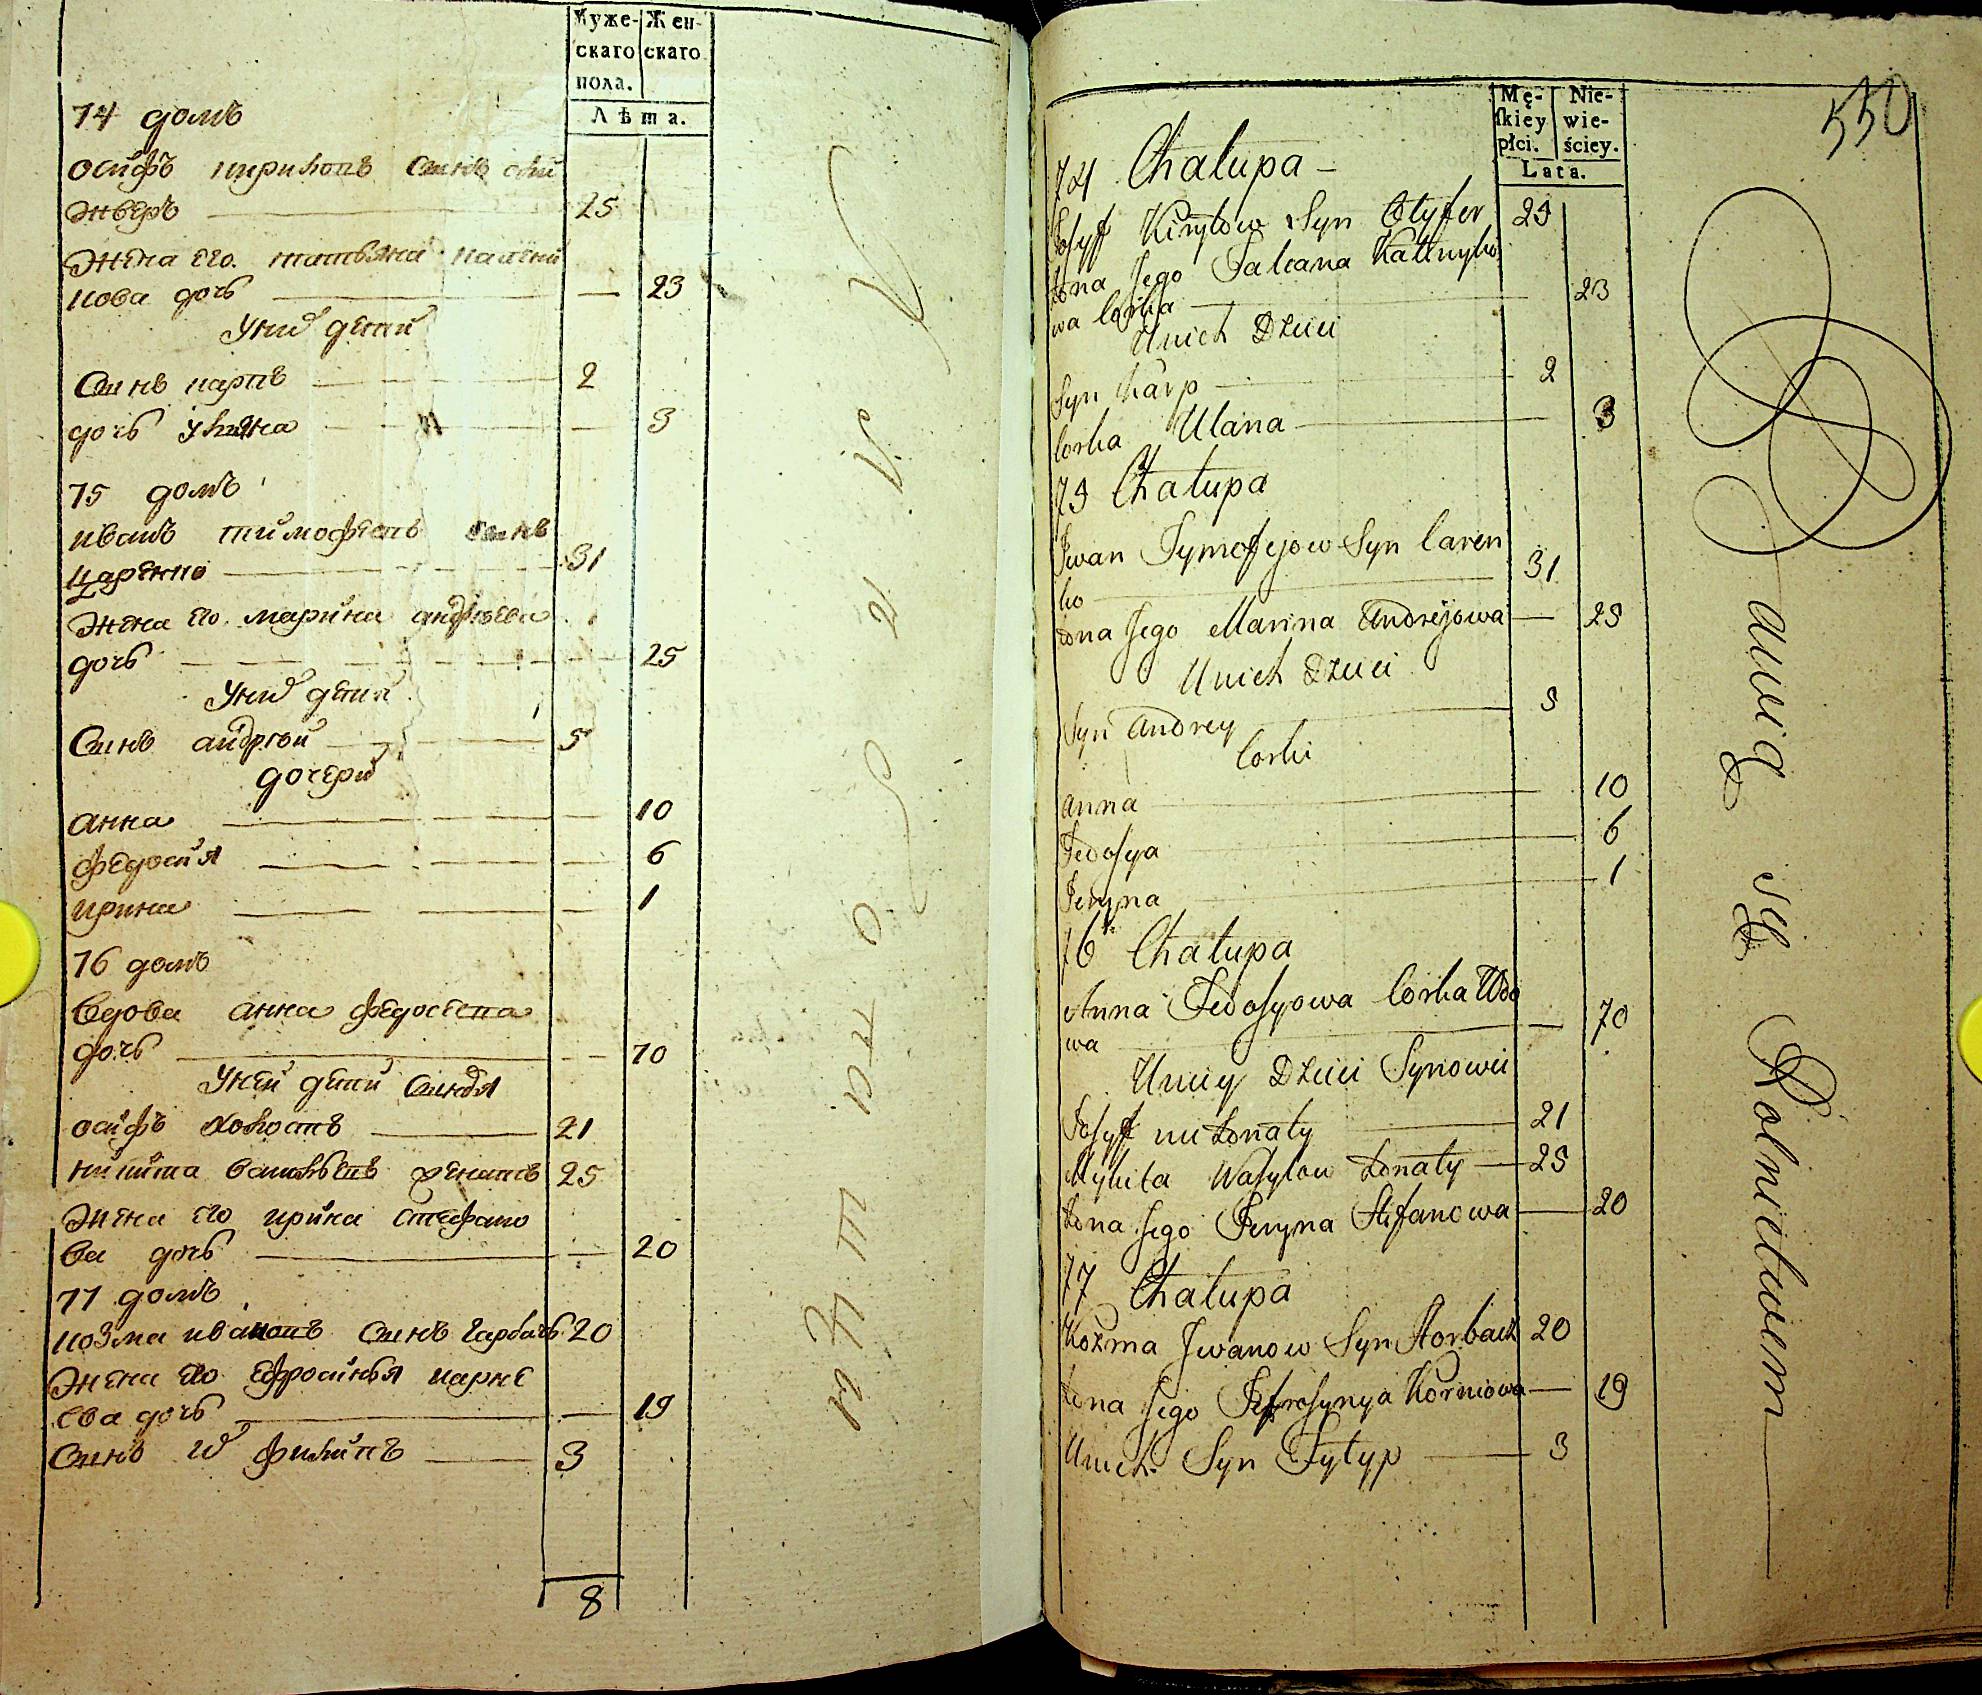 Мужескаго пола.
Женскаго
Лѣта.
74 домъ
осифъ кириловъ синъ оли
жверъ 25
Жена его татьяна калени
кова дочь 23
У них дети
Синъ карпъ 2
дочь Уляна 3
75 домъ
иванъ тимофеевъ синъ
царенко 31
Жена его марина андреева
дочь 25
У них дети
Синъ андрей 5
дочери
анна 10
федосия 6
ирина 1
76 домъ
Вдова анна федосеева
дочь 70
У ней дети синовя
осифъ холостъ 21
никита василевъ женатъ 25
Жена его ирина стефано
ва дочь 20
77 домъ
козма ивановъ синъ Гарбачъ 20
Жена его ефросиния карне
ева дочь 19
Синъ их филипъ 3
8
550
Męſkiey płci.
Niewieściey.
Lata.
74 Chałupa
Josyff Kiryłow Syn Ołyfer 25
Żona Jego Tatiana Kallnyko
wa Corka 23
U nich Dzieci
Syn Karp 2
Corka Ulana 3
75 Chałupa
Iwan Tymofejow Syn Caren
ko 31
Żona Jego Marina Andrejowa 25
U nich Dzieci
Syn Andrey 5
Corki
Anna 10
Fedosya 6
Jeryna 1
76 Chałupa
Anna Fedosyowa Corka Wdo
wa 70
U niey Dzieci Synowie
Josyff nie Żonaty 21
Mykita Wasylow Żonaty 25
Żona Jego Jeryna Stefanowa 20
77 Chałupa
Kozma Iwanow Syn Horbacz 20
Żona Jego Jefrosynya Korniowa 19
U nich Syn Fyłyp 3
Rolnictwem